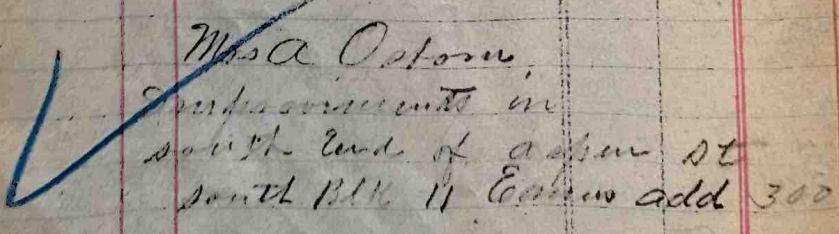 Mrs A Osborn
Improvements in
south End of aspen st
south Blk 11 Eames add 300